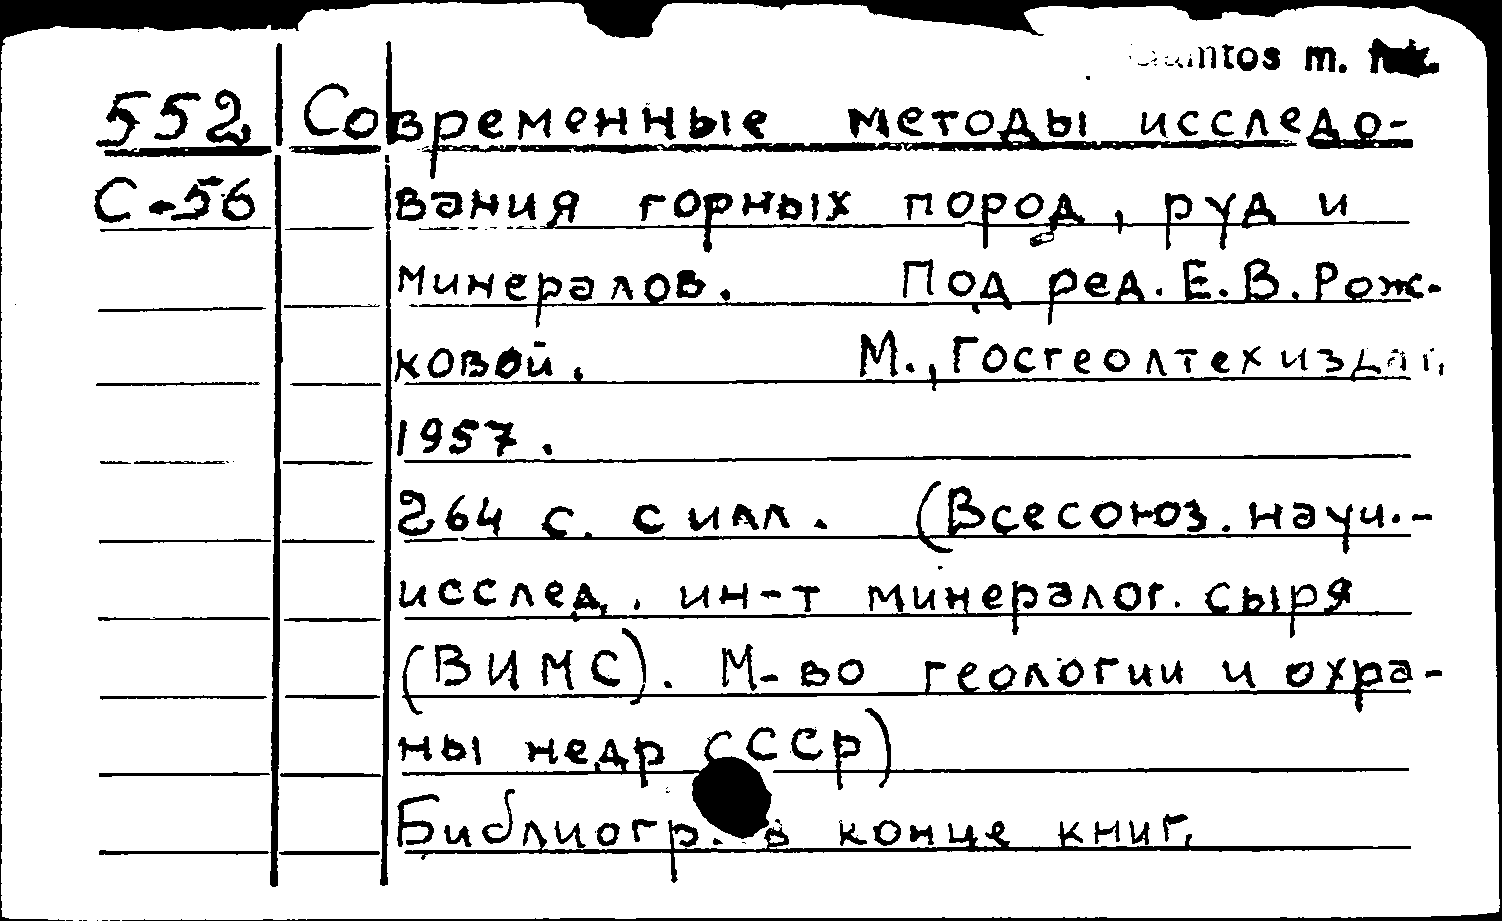 m.
552 Современные методы исследо-
С-56 вания горных пород, руд и
минералов. Под ред. Е.В.Рож-
ковой. М., Госгеолтехиздат,
1957.
264 с. с илл. (Всесоюз. науч.-
исслед. ин-т минералог. сыря
(ВИМС). М-во геологии и охра-
ны недр СССР)
Библиогр. в конце книг.